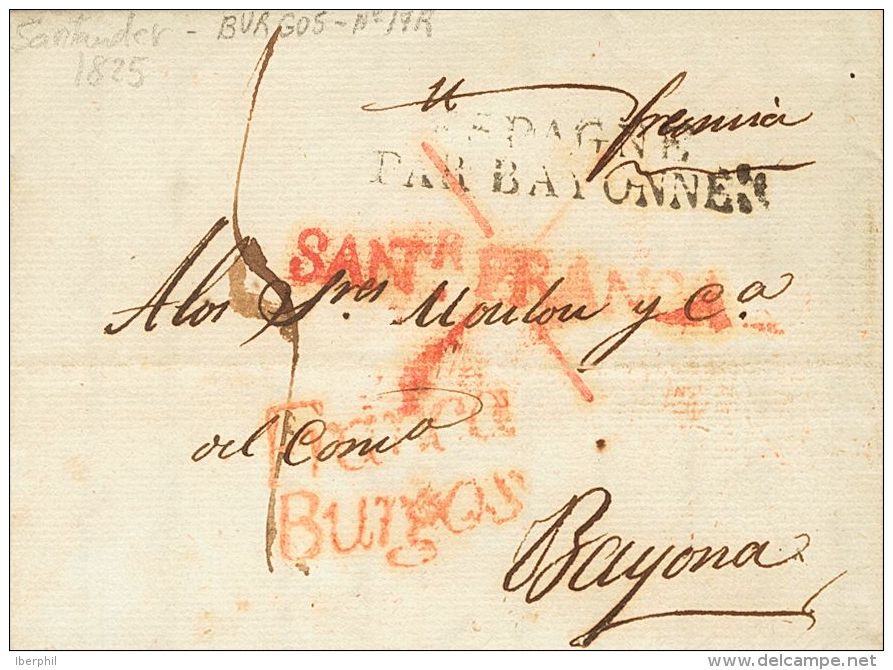 Santander - BURGOS - Nº 17R
1825
Francia
ESPAGNE
PAR BAYONNE
SANTR FRANCA
A los Sres Moulou y Ca
del Como
Franca
Burgos
Bayona
Iberphil
www.delcampe.net